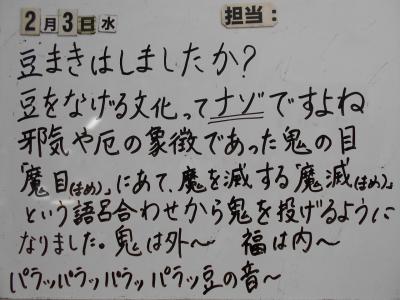 2月3日水 担当:
豆まきはしましたか?
豆をなげる文化ってナゾですよね
邪気や厄の象徴であった鬼の目
「魔目(まめ)」にあて、魔を滅する「魔滅(まめ)」
という語呂合わせから鬼を投げるように
なりました。鬼は外〜 福は内〜
パラッパラッパラッ パラッ豆の音〜